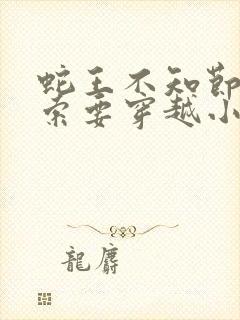 蛇王不知節
索要穿越小
龍麝